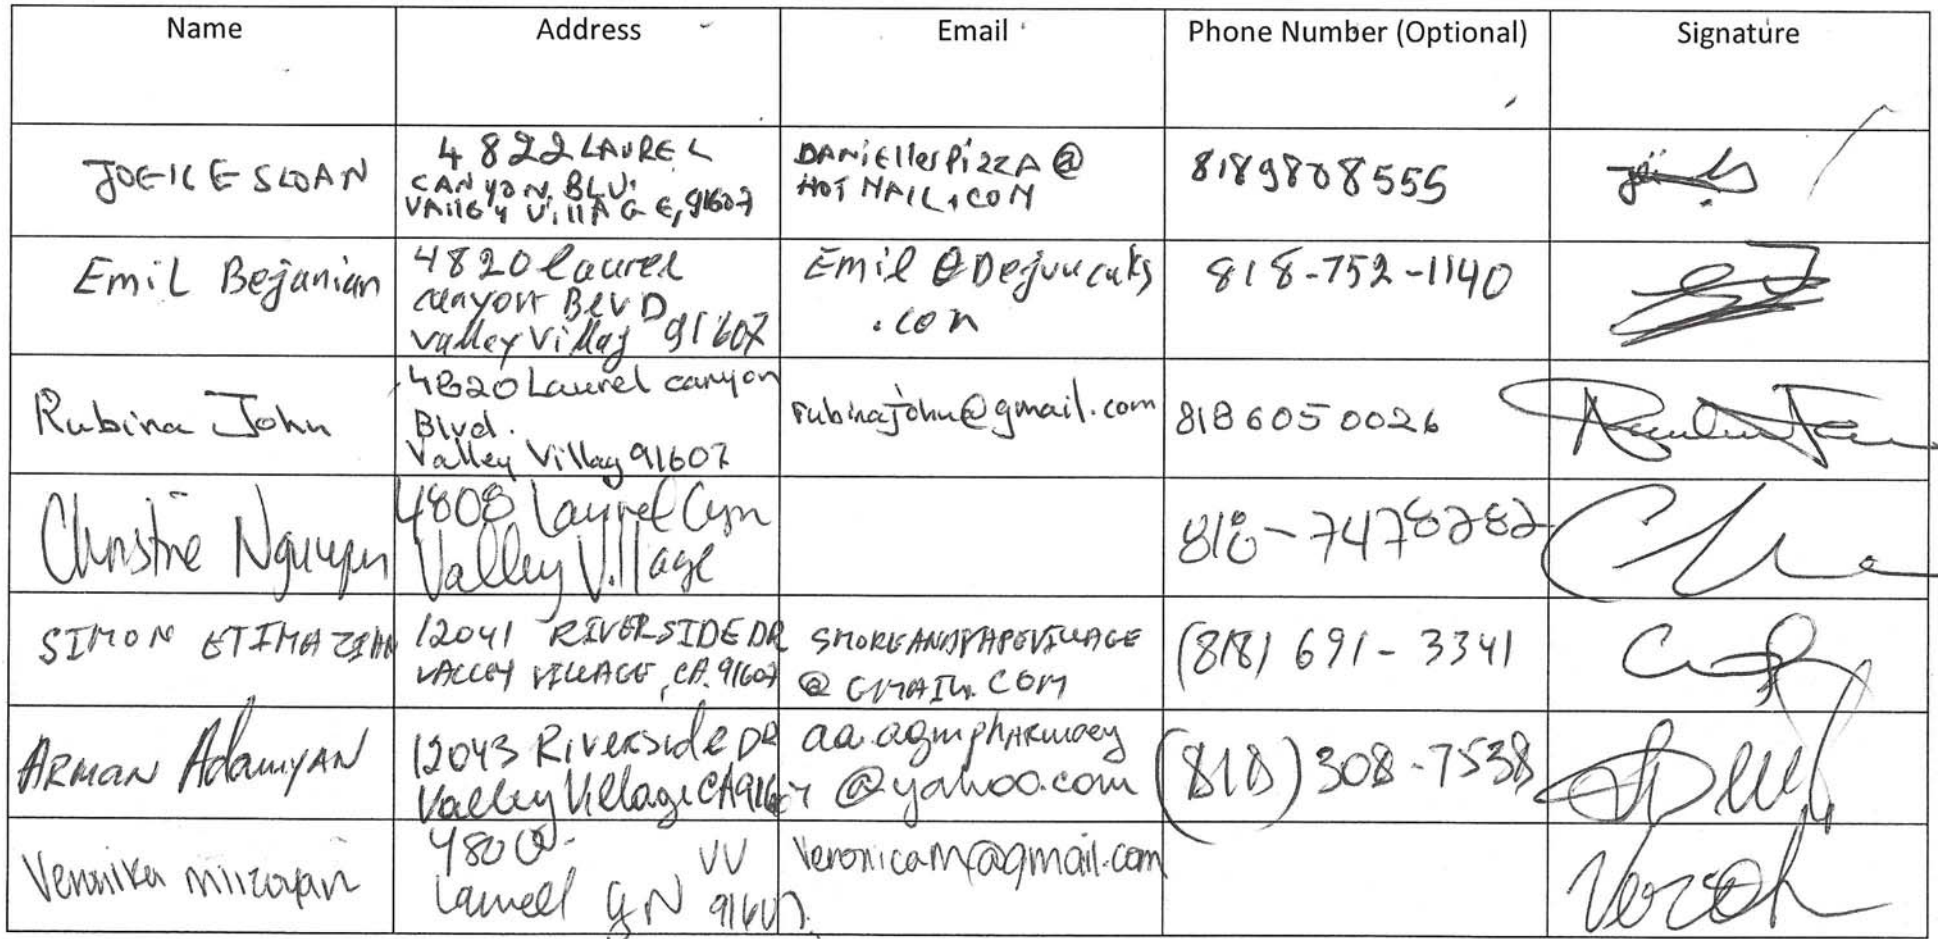 Name Address Email Phone Number (Optional) Signature
JOEIL E SLOAN
4822 LAUREL
CANYON, BLV.
VAllEy VillAGE, 91607
DANiEllesPizzA @
HOTMAIL.COM
8189808555
Emil Bejanian
4820 laurel
canyon BLVD
valley Villag 91607
Emil @Dejuucuts
.com
818-752-1140
Rubina John
4820 Laurel canyon
Blvd.
Valley Villag 91607
rubinajohn@gmail.com
818 605 0026
Christine Nguyen
4808 Laurel Cyn
Valley Village
818-7478282
SIMON ETIMAZIAN
12041 RIVERSIDE DR
VALLEY VILLAGE, CA. 91607
SMOKEANDVAPEVILLAGE
@ GMAIL. COM
(818) 691-3341
ARMAN AdamyAN
12043 Riverside DR
Valley Village CA 91607
aa.agmphARmacy
@yahoo.com
(818) 308-7538
4800 VV
Laurell CyN 91607
veronicam@gmail.com